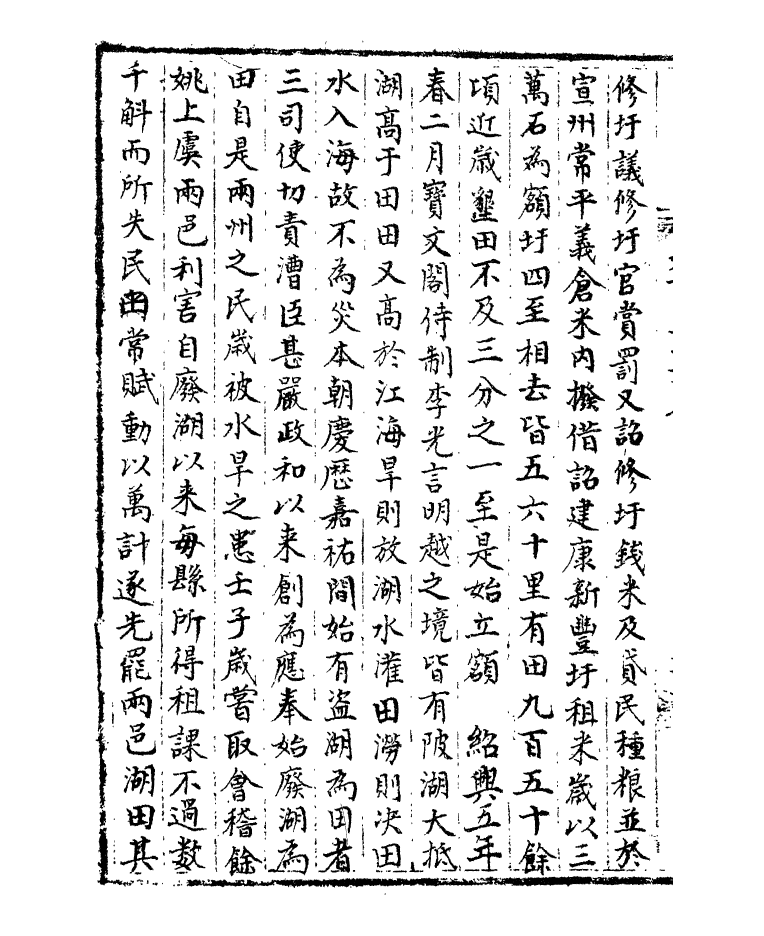 修圩議修圩官賞罰又詔修圩錢米及貸民種粮並於
宣州常平義倉米内撥借詔建康新豐圩租米嵗以三
萬石為額圩四至相去皆五六十里有田九百五十餘
頃近嵗墾田不及三分之一至是始立額　紹興五年
春二月寶文閣待制李光言明越之境皆有陂湖大抵
湖髙于田田又髙於江海旱則放湖水灌田澇則决田
水入海故不為災本朝慶歴嘉祐間始有盗湖為田者
三司使切責漕臣甚嚴政和以来創為應奉始廢湖為
田自是兩州之民嵗被水旱之患壬子嵗嘗取會稽餘
姚上虞兩邑利害自廢湖以来每縣所得租課不過数
千斛而所失民田常賦動以萬計遂先罷兩邑湖田其